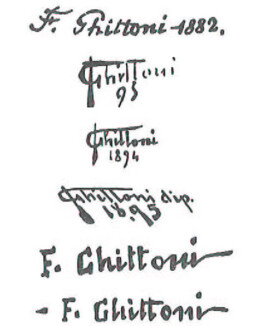 F. Ghittoni 1882.
Ghittoni
93
Ghittoni
1894
Ghittoni dip.
1895
F. Ghittoni
- F. Ghittoni